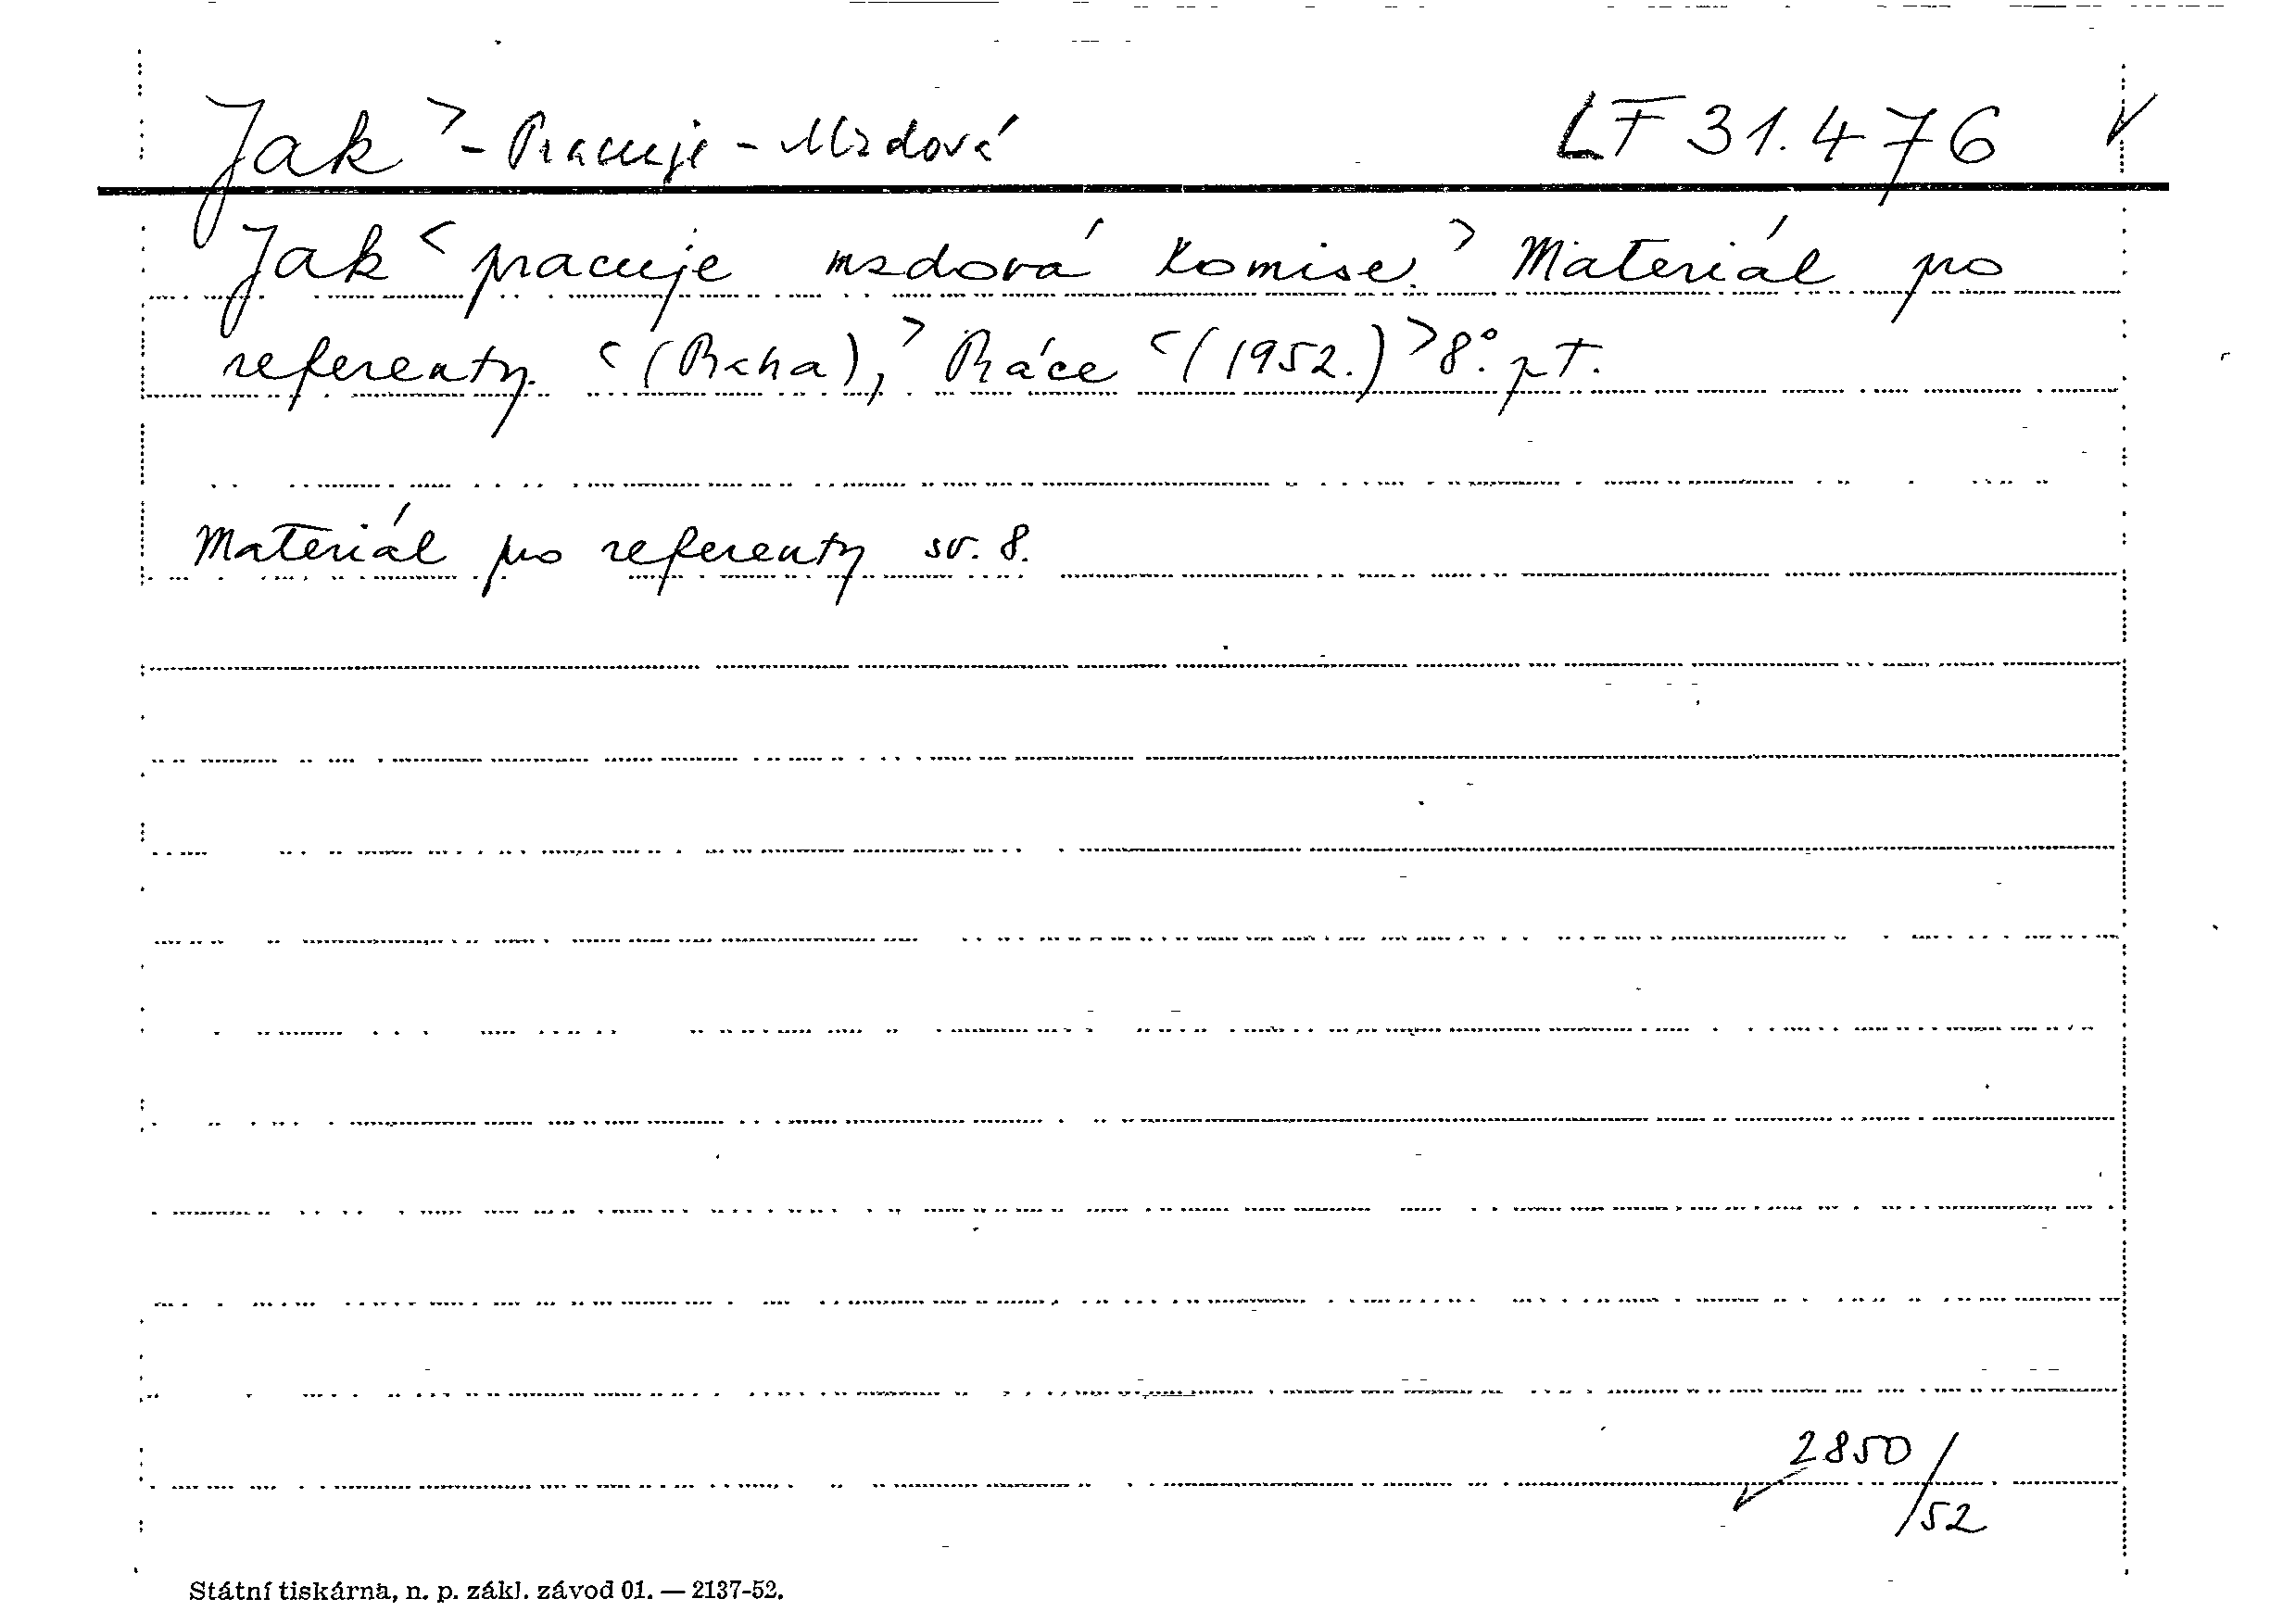 Jak > - Pracuje - Mzdová LF 31.476 √
Jak < pracuje mzdová komise. > Materiál pro
referenty. < (Praha), > Práce < (1952.) > 8°. pt.
Materiál pro referenty sv. 8.
2850/52
Státní tiskárna, n. p. zákl. závod 01. — 2137-52.